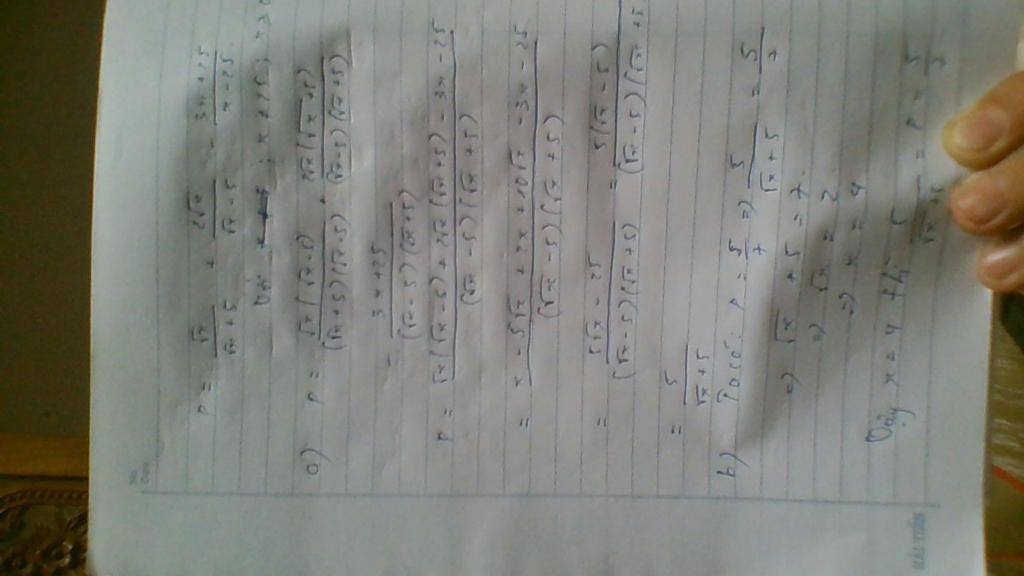 No.
Date
P = \frac{\sqrt{x}}{\sqrt{x}+5} + \frac{2\sqrt{x}}{\sqrt{x}-5} - \frac{3x+25}{x-25}
Với ; x ≠ 25 ; x ≥ 0
a) P = \frac{\sqrt{x}(\sqrt{x}-5)}{(\sqrt{x}+5)(\sqrt{x}-5)} + \frac{2\sqrt{x}(\sqrt{x}+5)}{(\sqrt{x}-5)(\sqrt{x}+5)}
= \frac{3x+25}{(\sqrt{x}-5)(\sqrt{x}+5)}
P = \frac{\sqrt{x}(\sqrt{x}-5)+2\sqrt{x}(\sqrt{x}+5)-3x-25}{(\sqrt{x}-5)(\sqrt{x}+5)}
= \frac{x-5\sqrt{x}+2x+10\sqrt{x}-3x-25}{(\sqrt{x}-5)(\sqrt{x}+5)}
= \frac{5\sqrt{x}-25}{(\sqrt{x}-5)(\sqrt{x}+5)} = \frac{5(\sqrt{x}-5)}{(\sqrt{x}-5)(\sqrt{x}+5)}
= \frac{5}{\sqrt{x}+5}
b) Ta có: P = \frac{5}{7} => \frac{5}{\sqrt{x}+5} = \frac{5}{7}
=> \sqrt{x} + 5 = 7.
=> \sqrt{x} = 2
=> x = 4
Vậy x = 4 thì \frac{5}{\sqrt{x}+5} = P = \frac{5}{7}
HẢI TIẾN